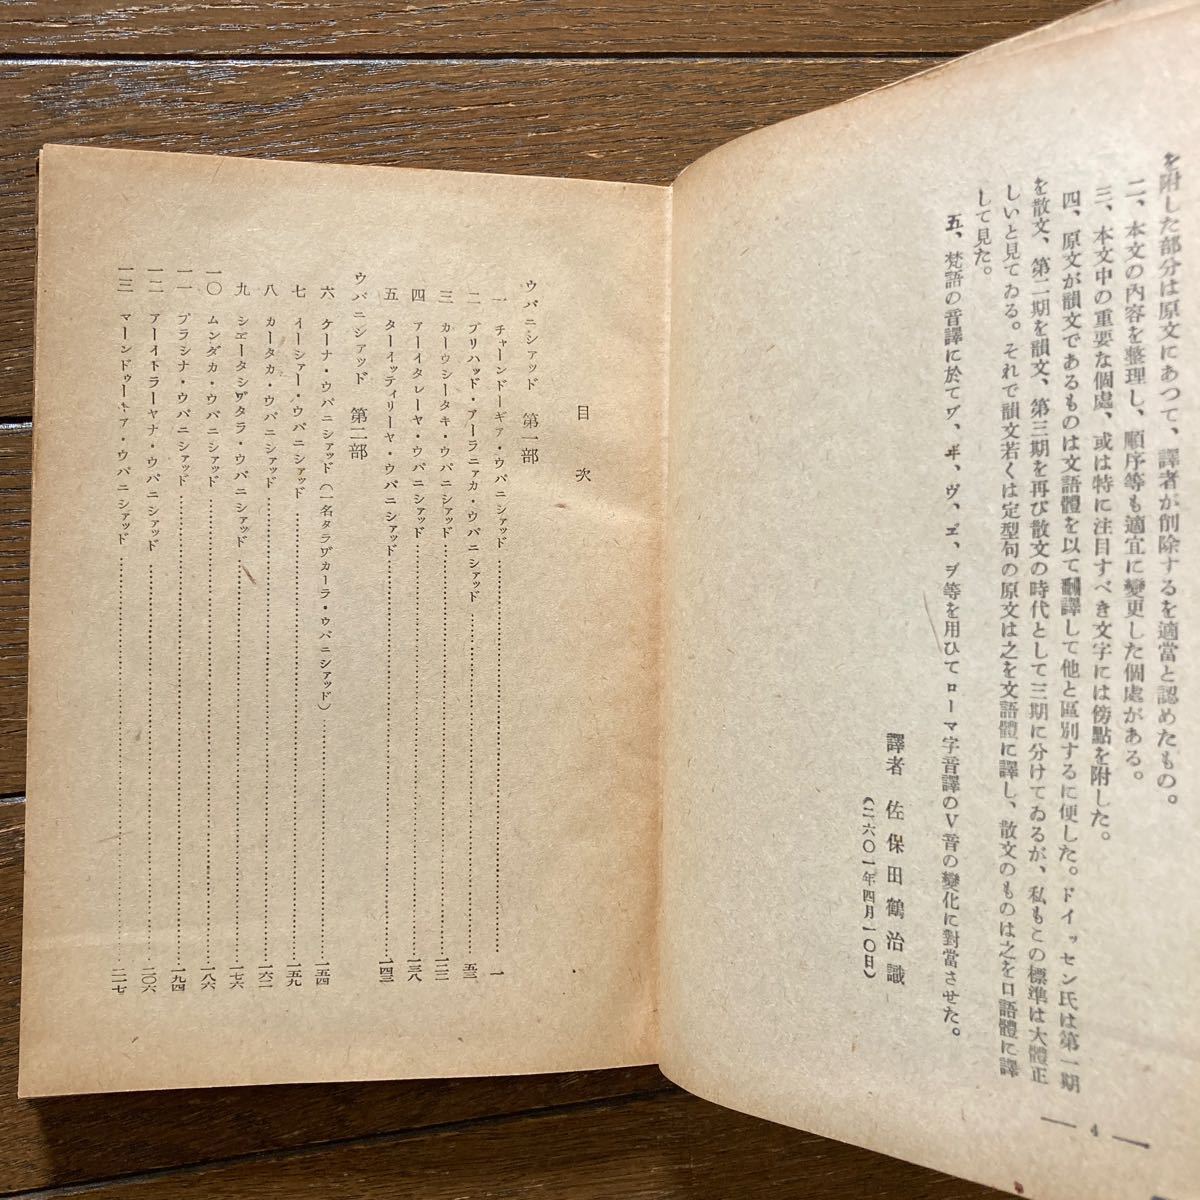 を附した部分は原文にあつて、譯者が削除するを適當と認めたもの。
二、本文の内容を整理し、順序等も適宜に變更した個處がある。
三、本文中の重要な個處、或は特に注目すべき文字には傍點を附した。
四、原文が韻文であるものは文語體を以て飜譯して他と區別するに便した。ドイッセン氏は第一期
を散文、第二期を韻文、第三期を再び散文の時代として三期に分けてゐるが、私もこの標準は大體正
しいと見てゐる。それで韻文若くは定型句の原文は之を文語體に譯し、散文のものは之を口語體に譯
して見た。
五、梵語の音譯に於てヷ、ヸ、ヴ、ヹ、ヺ等を用ひてローマ字音譯のV音の變化に對當させた。
譯者 佐保田鶴治識
(二六〇一年四月一〇日)
4
目次
ウパニシァッド 第一部
一 チャーンドーギァ・ウパニシァッド 一
二 ブリハッド・アーラニァカ・ウパニシァッド 五三
三 カーウシータキ・ウパニシァッド 一二三
四 アーイタレーヤ・ウパニシァッド 一三八
五 ターイッティリーヤ・ウパニシァッド 一四三
ウパニシァッド 第二部
六 ケーナ・ウパニシァッド(一名タラヷカーラ・ウパニシァッド) 一五四
七 イーシァー・ウパニシァッド 一五九
八 カータカ・ウパニシァッド 一六二
九 シエータシヷタラ・ウパニシァッド 一七六
一〇 ムンダカ・ウパニシァッド 一八六
一一 プラシナ・ウパニシァッド 一九四
一二 アーイトラーヤナ・ウパニシァッド 二〇六
一三 マーンドゥーキァ・ウパニシァッド 二一七